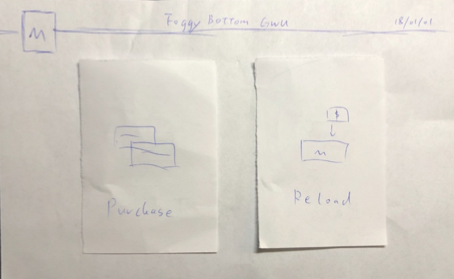 M
Foggy Bottom GWU
18/01/01
Purchase
$
M
Reload